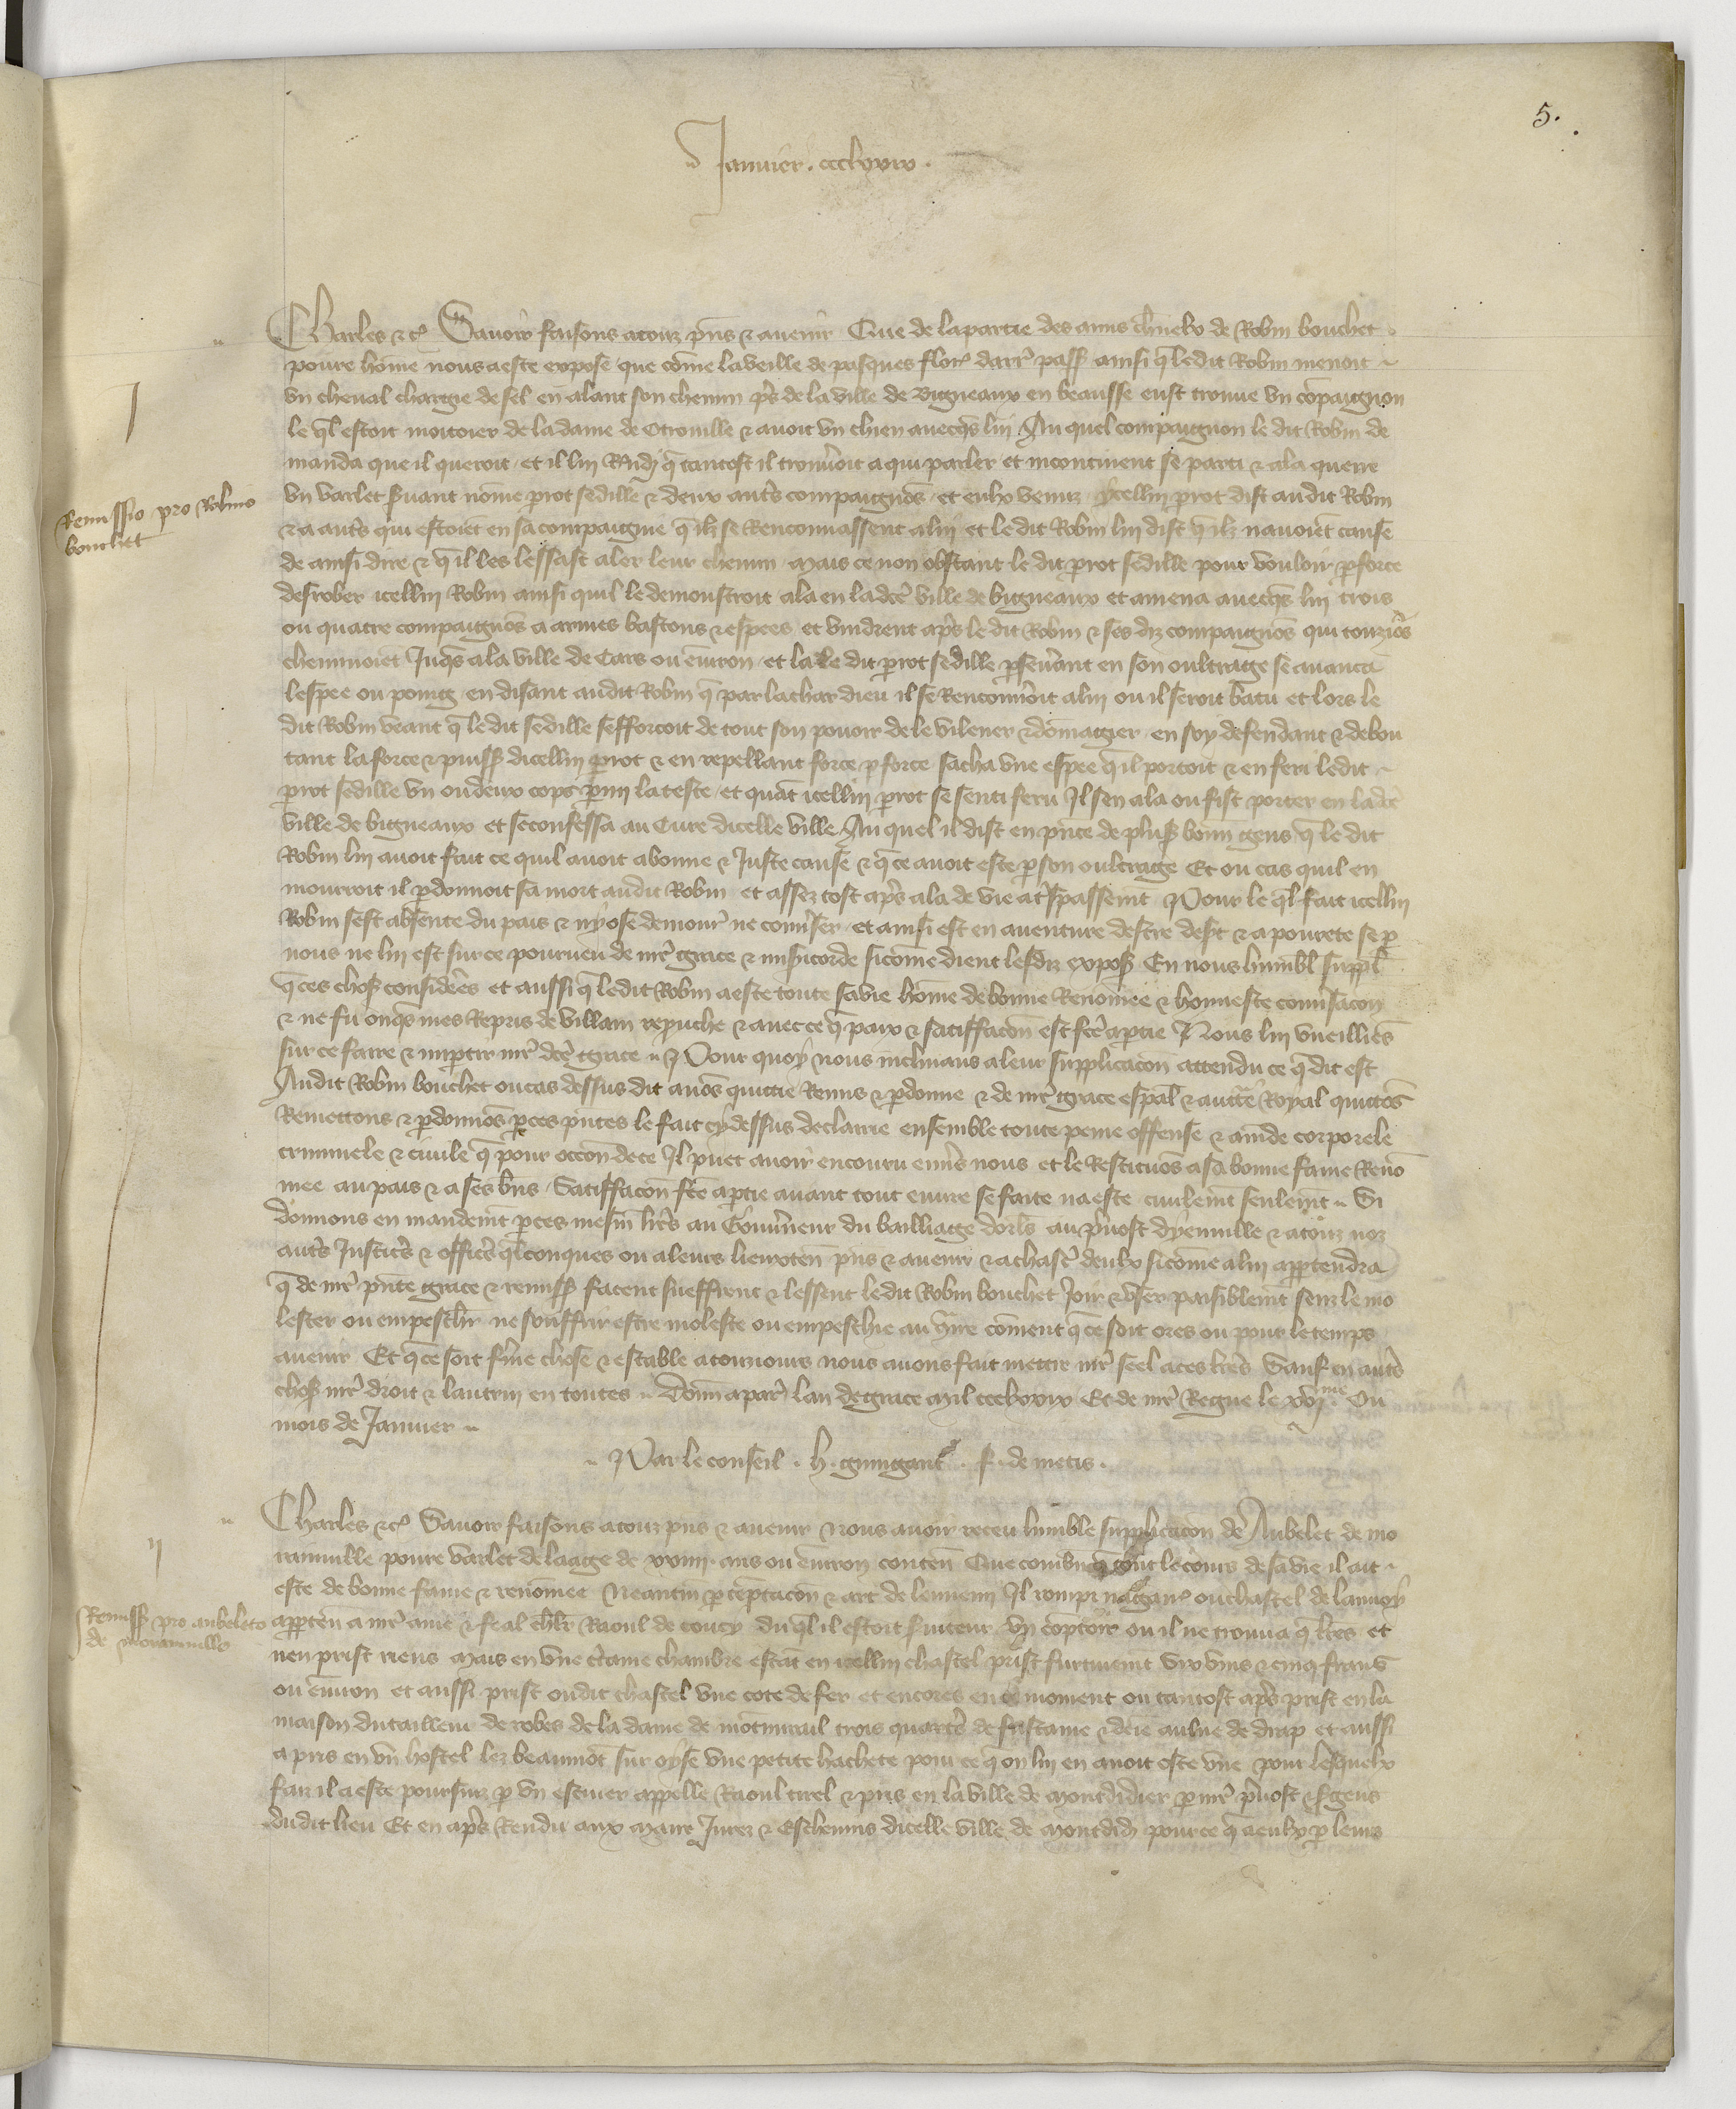 5.
Januier . ccclxxix .
Charles &c Sauoir faisons a touz pns & auenir Que de la partie des amis charnelx de Robin bouchet
poure home nous a este expose que come la veille de pasques flor darr pass ainsi q ledit Robin menoit
vn cheual chargie de sel en alant son chemin ps de la ville de Bigneaux en beausse eust trouue vn compaignon
le ql estoit moitoier de la dame de Otrouille & auoit vn chien auecqs lui Au quel compaignon le dit Robin de
manda que il queroit et il lui Rndi q tantost il trouuoit a qui parler et incontinent se parti & ala querre
vn varlet suant nome perot sedille & deux auts compaignos et eulx venuz ycellui perot dist audit Robin
& a auts qui estoiet en sa compaignie q ilz se Renconnassent a lui et le dit Robin lui dist q ilz nauoiet cause
de ainsi dire & q il les lessast aler leur chemin mais ce non obstant le dit perot sedille pour vouloir p force
desrober icellui Robin ainsi quil le demonstroit ala en ladce ville de bigneaux et amena auecqs lui trois
ou quatre compaignos a armes bastons & espees et vindrent aps le dit Robin & ses diz compaignos qui touzios
cheminoiet Juqs a la ville de Cars ou enuiron et la le dit perot sedille pseuant en son oultrage se auanca
lespee ou poing en disant audit Robin q par la char dieu il se Renconnoit a lui ou il seroit batu et lors le
dit Robin veant q le dit sedille sefforcoit de tout son pouoir de le vilener & domaiger en soy defendant & debou
tant la force & puiss dicellui perot & en repellant force p force sacha vne espee q il portoit & en feri ledit
perot sedille vn ou deux cops parmi la teste et quat icellui perot se senti feru Il sen ala ou fist porter en ladce
ville de bigneaux et se confessa au Cure dicelle ville Au quel il dist en pnce de plus bonn gens q le dit
Robin lui auoit fait ce quil auoit a bonne & Juste cause & q ce auoit este p son oultrage Et ou cas quil en
mourroit il pdonnoit sa mort audit Robin et assez tost aps ala de vie a tspassemt Pour le ql fait icellui
Robin sest absente du pais & ny ose demour ne conuser et ainsi est en auenture destre desert & a pourete se p
nous ne lui est sur ce pourueu de nre grace & misicorde si come dient lesdiz expos En nous humbl suppl
q ces chos considerees et aussi q ledit Robin a este toute sa vie home de bonne Renomee & honneste conusacon
& ne fu onqs mes Repris de villain repuche & auec ce q paix & satiffacon est fce a ptie Nous lui vueillies
sur ce faire & imptir nre dce grace Pour quoy nous inclinans a leur supplicacon attendu ce q dit est
Audit Robin bouchet ou cas dessus dit auos quittie Remis & pdonne & de nre grace espal & auctte Royal quittos
Remettons & pdonnos p ces pntes le fait cy dessus declairie ensemble toute peine offense & amde corporele
criminele & ciuile q pour occon de ce Il puet auoir encouru enuers nous et le Restituos a sa bonne fame Reno
mee au pais & a ses bns Satiffacon fce a ptie auant tout euure se faite na este ciuilemt seulemt Si
donnons en mandemt p ces mesm lres au Gouuneur du bailliage dorls au puost dyenuille & a touz noz
auts Justics & offics qlconques ou a leurs lieuxten pns & auenir & a chasc deulx si come a lui apptendra
q de nre pnte grace & remiss facent sueffrent & lessent ledit Robin bouchet Joir & vser paisiblemt senz le mo
lester ou empescher ne souffrir estre moleste ou empeschie au contre coment q ce soit ores ou pour le temps
auenir Et q ce soit ferme chose & estable a tousiours nous auons fait mettre nre seel a ces lres Sauf en auts
chos nre droit & lautruy en toutes Donn a par lan de grace mil ccclxxix Et de nre Regne le xvjme Ou
mois de Januier
Par le conseil . h . guingant . f . de metis .
Charles &c Sauoir faisons a touz pns & auenir Nous auoir receu humble supplicacon de Aubelet de mo
rainuille poure varlet de laage de xxiiij ans ou enuiron conten Que combien q tout le cours de sa vie il ait
este de bonne fame & renomee Neantm p teptacon & art de lennemi Il rompi nagaires ou chastel de lannoy
apperten a nre ame & feal chlr Raoul de coucy du ql il estoit suiteur vn coptoir ou il ne trouua q lres et
nen prist riens Mais en vne ctaine chambre estat en icellui chastel prist furtiuemt vix vins & cinq frans
ou enuiron et aussi prist oudit chastel vne cote de fer et encores en ce moment ou tantost aps prist en la
maison du tailleur de robes de la dame de motmirail trois quarts de fustaine & deie aulne de drap et aussi
a pris en vn hostel lez beaumot sur oyse vne petite hachete pour ce q on lui en auoit oste vne pour lesquelx
fais il a este poursuiz p vn escuier appelle Raoul tirel & pris en la ville de Montdidier p nre puost & sgens
dudit lieu Et en aps Rendu aux maire Jurez & Escheuins dicelle ville de Montdid pource q a eulx p leurs
I
Remissio pro Robino
bouchet
II
Remiss pro aubeleto
de morainuilla